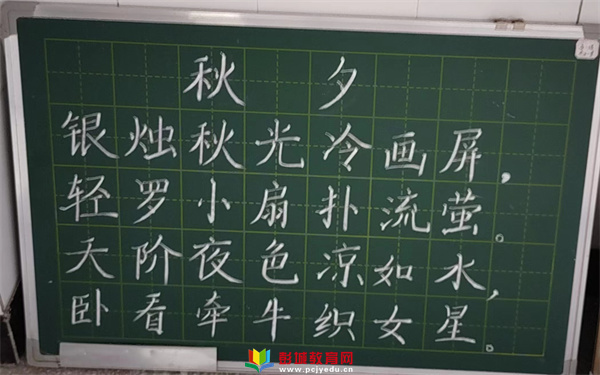 秋夕
银烛秋光冷画屏，
轻罗小扇扑流萤。
天阶夜色凉如水，
卧看牵牛织女星。
彭城教育网
www.pcjyedu.cn